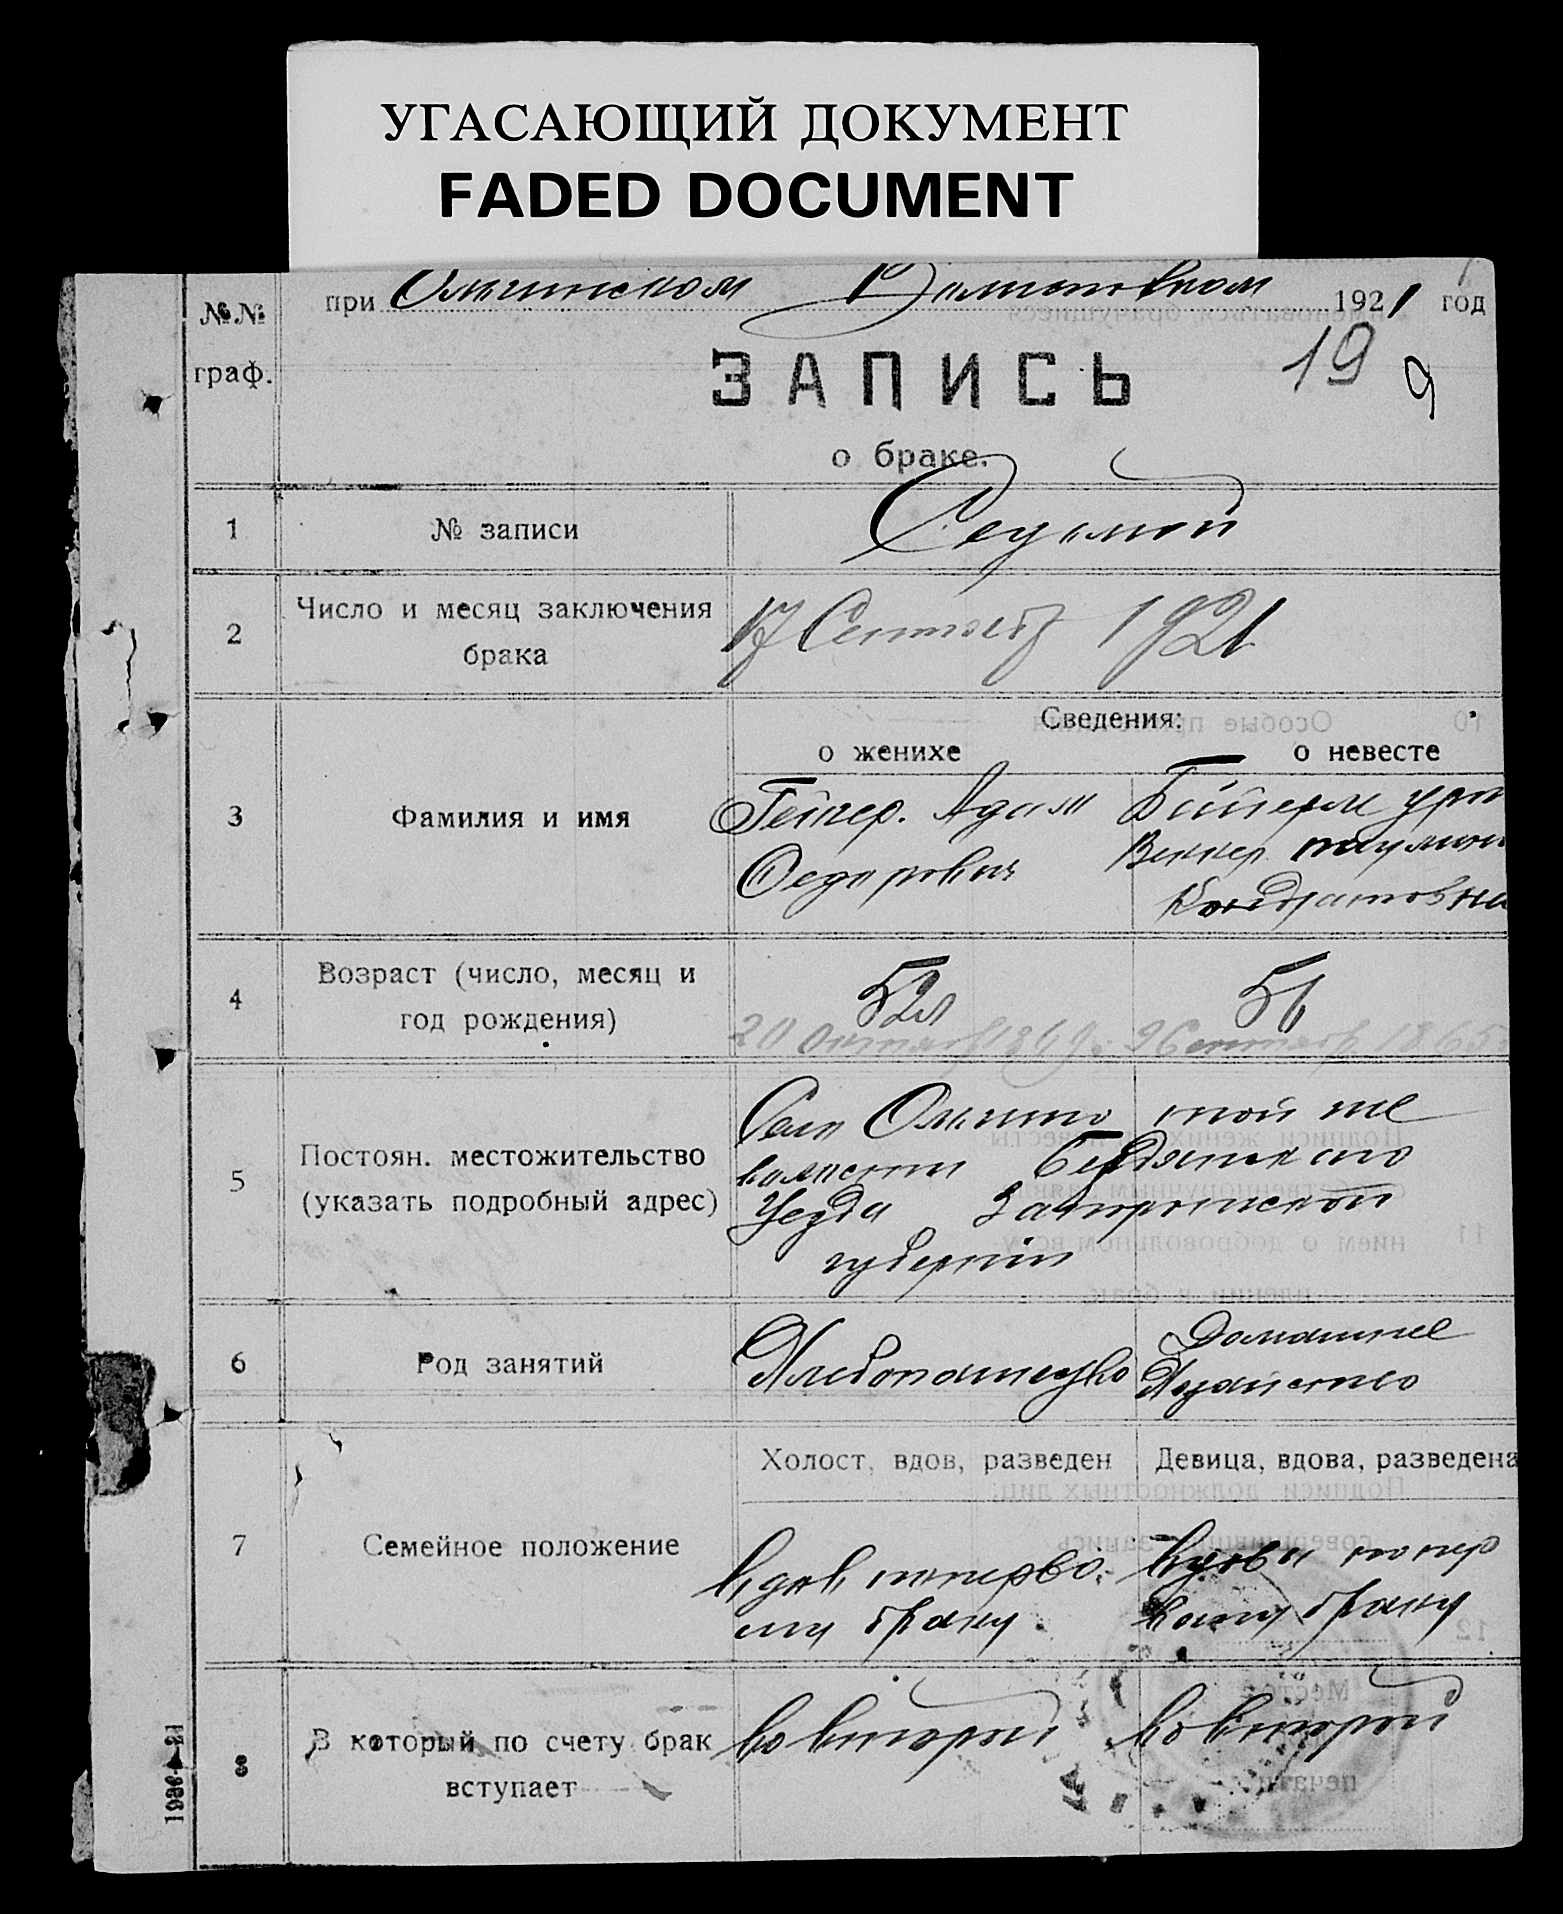 УГАСАЮЩИЙ ДОКУМЕНТ
FADED DOCUMENT
№№ граф.
при Ольгинском Волисполком 1921 год
19
9
ЗАПИСЬ
о браке.
1 № записи Седьмой
2 Число и месяц заключения брака 17 Сентяб 1921
Сведения:
о женихе о невесте
3 Фамилия и имя
Гейнер. Адам
Федорович
Кондратовна
4 Возраст (число, месяц и год рождения)
52л 56
20 Октяб 1869 г. 9 Сентяб 1865
5 Постоян. местожительство (указать подробный адрес)
Село Ольгино той же
волости Бердянского
Уезда Запорожской
губернии
6 Род занятий
Хлебопашество
Домашнее
Хозяйство
7 Семейное положение
Холост, вдов, разведен
Девица, вдова, разведена
вдов по перво-
му браку.
вдова по пер
вому браку
8 В который по счету брак вступает
во второй во второй